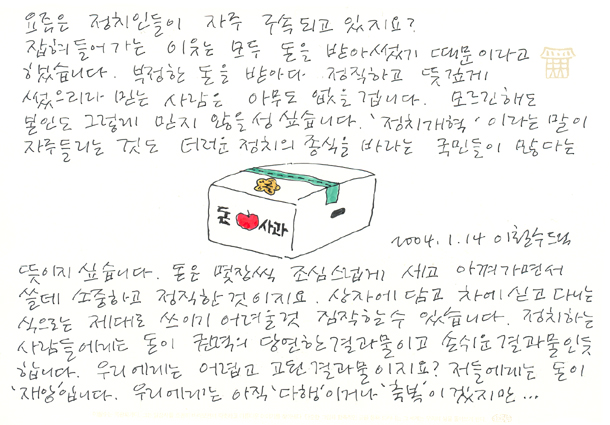 요즘은 정치인들이 자주 구속되고 있지요?
잡혀들어가는 이유는 모두 돈을 받아썼기 때문이라고
했습니다. 부정한 돈을 받아다 정직하고 뜻깊게
썼으리라 믿는 사람은 아무도 없을겝니다. 모르긴해도
본인도 그렇게 믿지 않을성 싶습니다. '정치개혁' 이라는 말이
자주들리는 것도 더러운 정치의 종식을 바라는 국민들이 많다는
돈 사과
2004.1.14 이철수드림
뜻이지 싶습니다. 돈은 몇장씩 조심스럽게 세고 아껴가면서
쓸데 소중하고 정직한 것이지요. 상자에 담고 차에 싣고 다니는
식으로는 제대로 쓰이기 어려울것 짐작할수 있습니다. 정치하는
사람들에게는 돈이 권력의 당연한 결과물이고 손쉬운 결과물인듯
합니다. 우리에게는 어렵고 고된 결과물이지요? 저들에게는 돈이
'재앙'입니다. 우리에게는 아직 '다행'이거나 '축복'이겠지만...